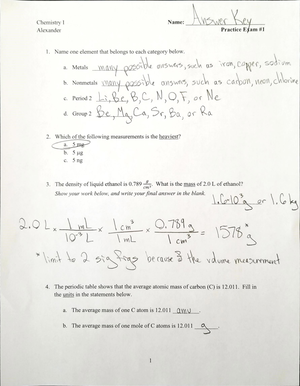 Chemistry 1 Name: Answer Key
Alexander Practice Exam #1
1. Name one element that belongs to each category below.
a. Metals many possible answers, such as iron, copper, sodium
b. Nonmetals many possible answers, such as carbon, neon, chlorine
c. Period 2 Li, Be, B, C, N, O, F, or Ne
d. Group 2 Be, Mg, Ca, Sr, Ba, or Ra
2. Which of the following measurements is the heaviest?
a. 5 mg
b. 5 μg
c. 5 ng
3. The density of liquid ethanol is 0.789 g/cm³. What is the mass of 2.0 L of ethanol?
Show your work below, and write your final answer in the blank.
1.6·10³ g or 1.6 kg
2.0 L × 1 mL / 10⁻³ L × 1 cm³ / 1 mL × 0.789 g / 1 cm³ = 1578* g
* limit to 2 sig figs because of the volume measurement
4. The periodic table shows that the average atomic mass of carbon (C) is 12.011. Fill in
the units in the statements below.
a. The average mass of one C atom is 12.011 amu.
b. The average mass of one mole of C atoms is 12.011 g.
1